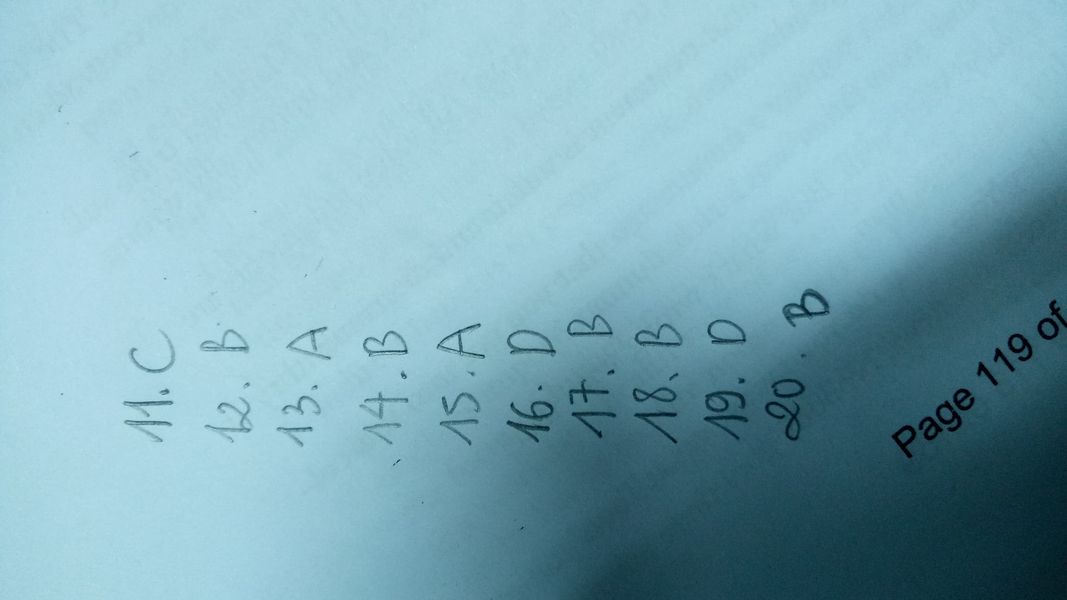 11. C
12. B
13. A
14. B
15. A
16. D
17. B
18. B
19. D
20. B
Page 119 of